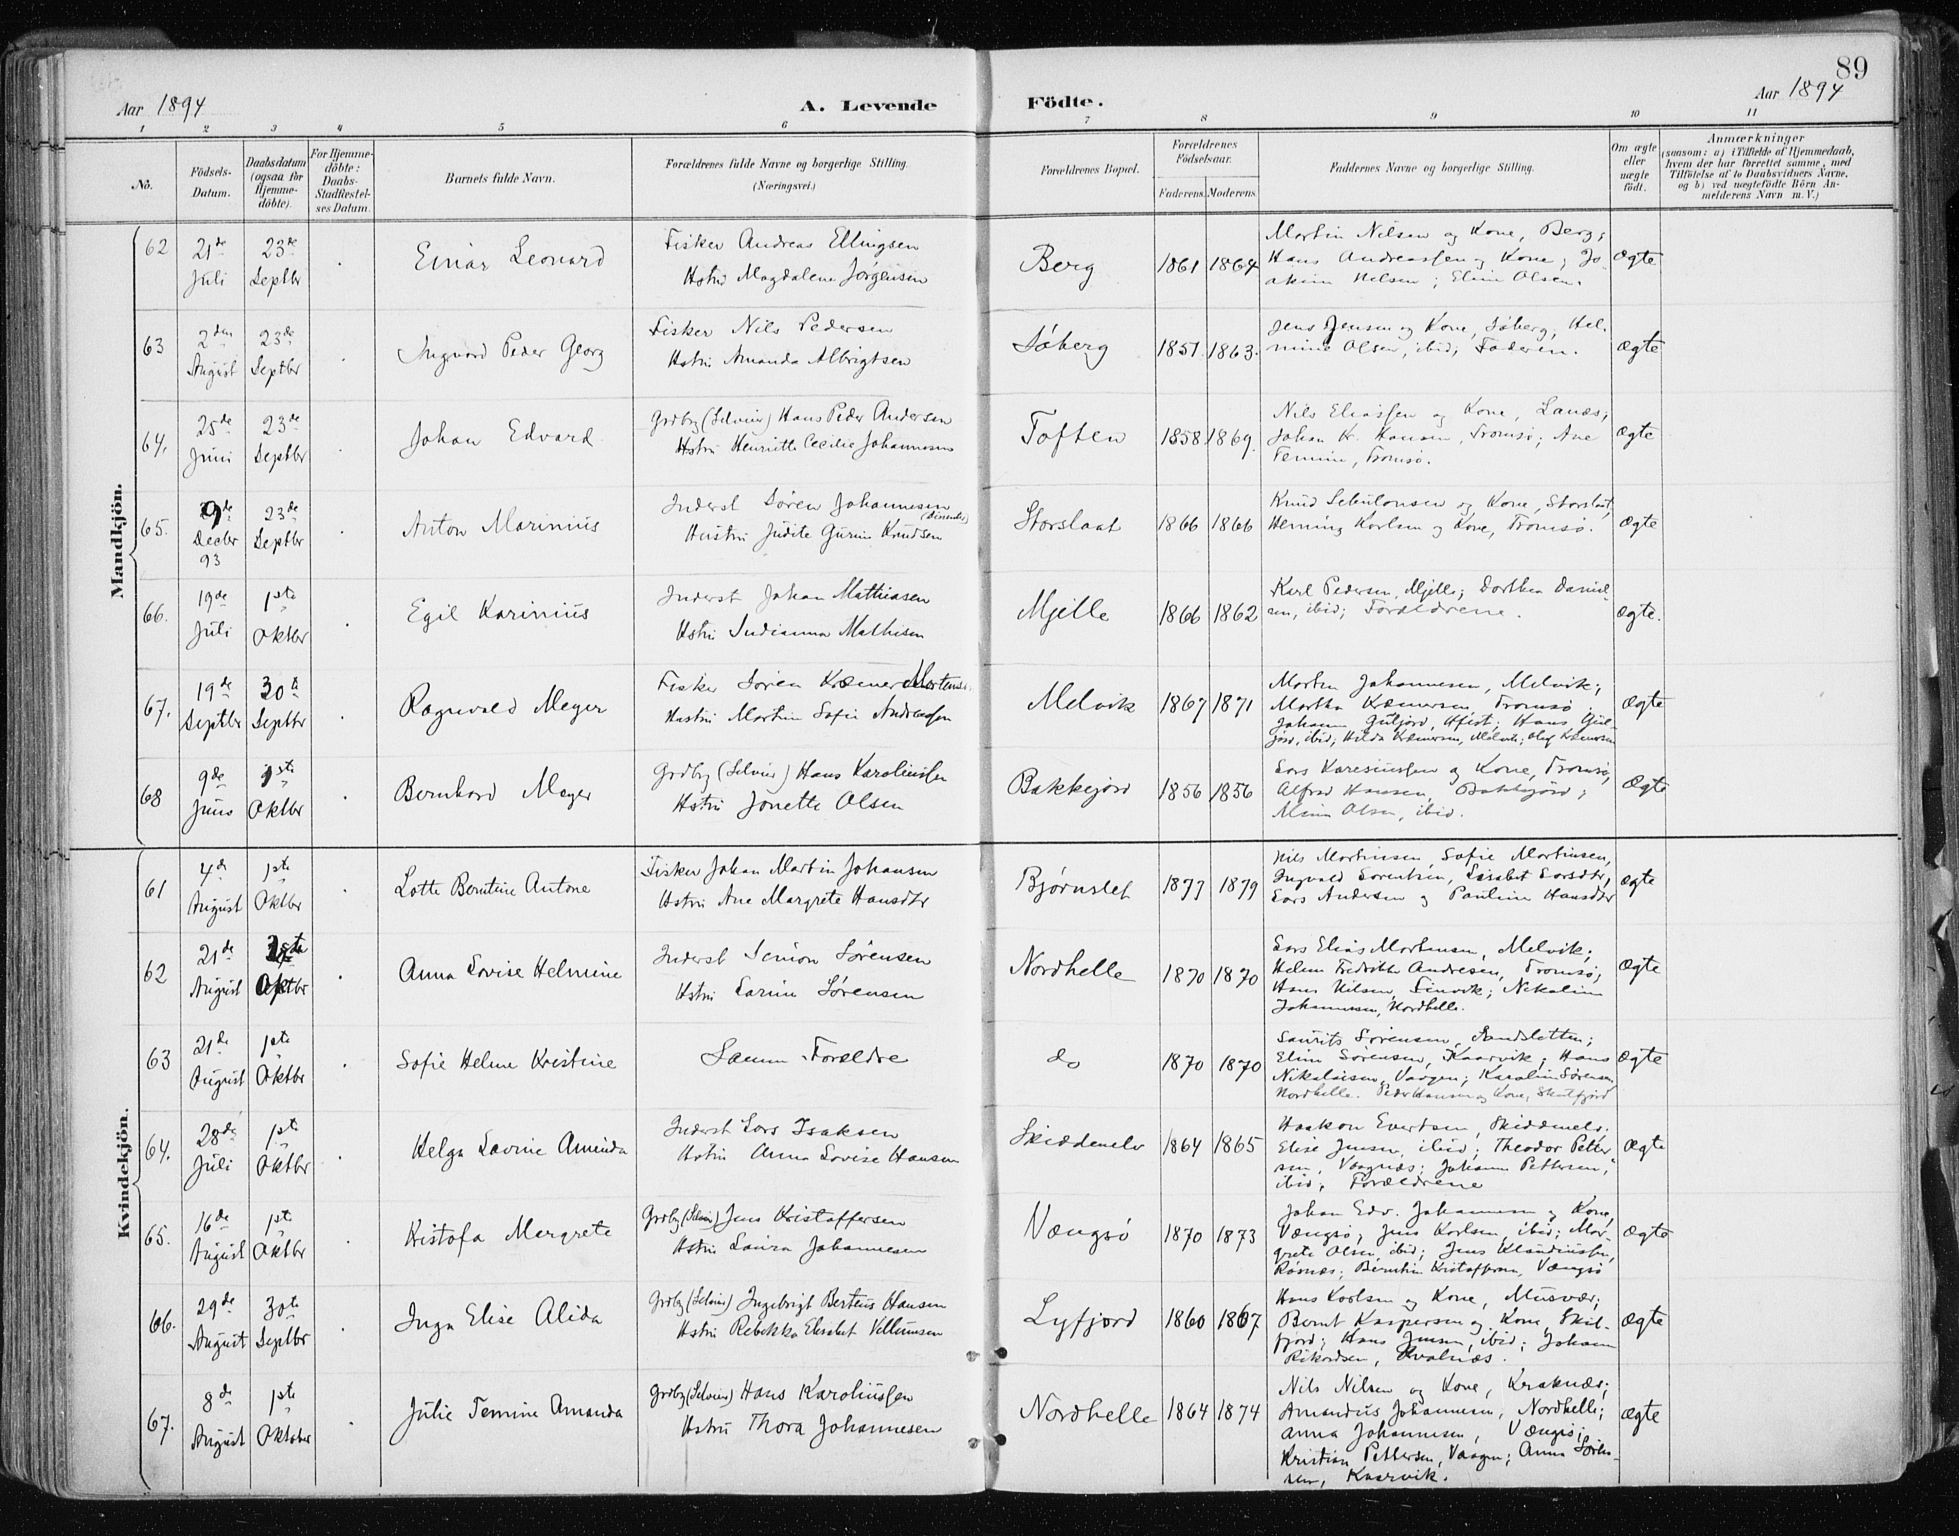 89
Aar 1894 A. Levende Födte. Aar 1894
1 2 3 4 5 6 7 8 9 10 11
No. Födsels-Datum. Daabsdatum (ogsaa for Hjemme-döbte). For Hjemme-döbte: Daabs-Stadfæstel-ses Datum. Barnets fulde Navn. Forældrenes fulde Navne og borgerlige Stilling. (Næringsvei.) Forældrenes Bopæl. Forældrenes Födselsaar. Faderens. Moderens. Faddernes Navne og borgerlige Stilling. Om ægte eller uægte födt. Anmærkninger (saasom: a) i Tilfælde af Hjemmedaab, hvem der har forrettet samme, med Tilföielse af to Daabsvidners Navne, og b) ved uægtefödte Börn An-melderens Navn m. V.)
Mandkjön.
62 21de Juli 23de Septbr Einar Leonard Fisker Andreas Ellingsen
Hstru Magdalena Jørgensen Berg 1861 1864 Martin Nilsen og Kone, Berg;
Hans Andreassen og Kone; Jo-
akim Nilsen; Eline Olsen. ægte
63 2den August 23de Septbr Ingvard Peder Georg Fisker Nils Pedersen
Hstru Amanda Albrigtsen Søberg 1851 1863. Jens Jensen og Kone, Søberg; Hel-
mine Olsen, ibid; Faderen. ægte
64. 25de Juni 23de Septbr Johan Edvard Grdbr (Selveier) Hans Peder Andersen
Hstru Henriette Cecilie Johannesen Toften 1858 1869. Nils Eliassen og Kone, Lanæs;
Johan Kr. Hansen, Tromsø; Ane
Temine, Tromsø. ægte
65. 9de Decbr 93 23de Septbr Anton Marinius Inderst Søren Johannesen
Hustru Judite Gurine Knudsen Storslaat 1866 1866 Knud Sebulonsen og Kone, Storslaat,
Henning Karlsen og Kone, Tromsø. ægte
66. 19de Juli 1ste Oktbr Egil Karinius Inderst Johan Mathiasen
Hstru Indianna Mathisen Mjelle 1866 1862 Karl Pedersen, Mjelle; Dorthea Daniel-
sen, ibid; Forældrene. ægte.
67. 19de Septbr 30te Septbr Ragnvald Meyer Fisker Søren Kræmer Mortensen
Hustru Martine Sofie Andreassen Melvik 1867 1871 Morten Johannesen, Melvik;
Martha Kræmersen, Tromsø;
Johanna Guljord, Hfest; Hans Gul-
jord, ibid; Hilda Kræmersen, Melvik; Oluf Kræmersen ægte
68 9de Juni 1ste Oktbr Bernhard Meyer Grdbr (Selveier) Hans Karoliussen
Hstru Jonette Olsen Bakkejord 1856 1856 Lars Karesiussen og Kone, Tromsø;
Alfred Hansen, Bakkejord;
Olsen, ibid. Ægte
Kvindekjön.
61 4de August 1ste Oktbr Lotte Berntine Antone Fisker Johan Martin Johansen
Hstru Ane Margrete Hansdtr Bjørnslet 1877 1879 Nils Martinsen, Sofie Martinsen,
Ingvald Sorentsen, Lisabet Larsdtr,
Lars Andersen og Pauline Hansdtr ægte
62 21de August 1ste Oktbr Anna Lovise Helmine Inderst Simon Sørensen
Hstru Sørensen Nordhelle 1870 1870 Lars Elias Mortensen, Melvik;
Helene Fredrikke Andresen, Tromsø;
Hans Nilsen, Finvik; Nikoline
Johannesen, Nordhelle. ægte
63 21de August 1ste Oktbr Sofie Helene Kristine Samme Forældre do 1870 1870 Laurits Sørensen, Sandsletten;
Eline Sørensen, Kaarvik; Hans
Nikolaisen, Vaagen; Karoline Sørensen
Nordhelle. Peder Hansen og Kone, Skulfjord ægte
64. 28de Juli 1ste Oktbr Helga Lavine Aminda Inderst Lars Isaksen
Hstru Anna Lovise Hansen Skiddenelv 1864 1865 Haakon Evertsen, Skiddenelv;
Elise Jensen, ibid; Theodor Petter-
sen, Vaagnæs; Johanne Pettersen,
ibid; Forældrene ægte
65. 16de August 1ste Oktbr Kristofa Margrete Grdbr (Selveier) Jens Kristoffersen
Hstru Laura Johannesen Vængsø 1870 1873 Johan Edv. Johannesen og Kone,
Vængsø; Jens Karlsen, ibid; Mar-
grete Olsen, ibid; Jens Klaudiussen,
Røsnæs; Berntin Kristoffersen, Vængsø ægte
66. 29de August 30te Septbr Inga Elise Alida Grdbr (Selveier) Ingebrigt Berteus Hansen
Hstru Rebekka Elisabet Vilumsen Lyfjord 1860 1867 Hans Karlsen og Kone, Musvær;
Bernt Kaspersen og Kone, Skul-
fjord; Hans Jensen, ibid; Johan
Rikardsen, Kvalnæs. ægte
67. 8de August 1ste Oktober Julie Temine Amanda Grdbr (Selveier) Hans Karoliussen
Hstru Thora Johannesen Nordhelle 1864 1874 Nils Nilsen og Kone, Kraknæs;
Amandus Johannesen, Nordhelle;
Anna Johannesen, Vængsø;
Kristian Pettersen, Vaagen; Anna Søren-
sen, Kaarvik. ægte